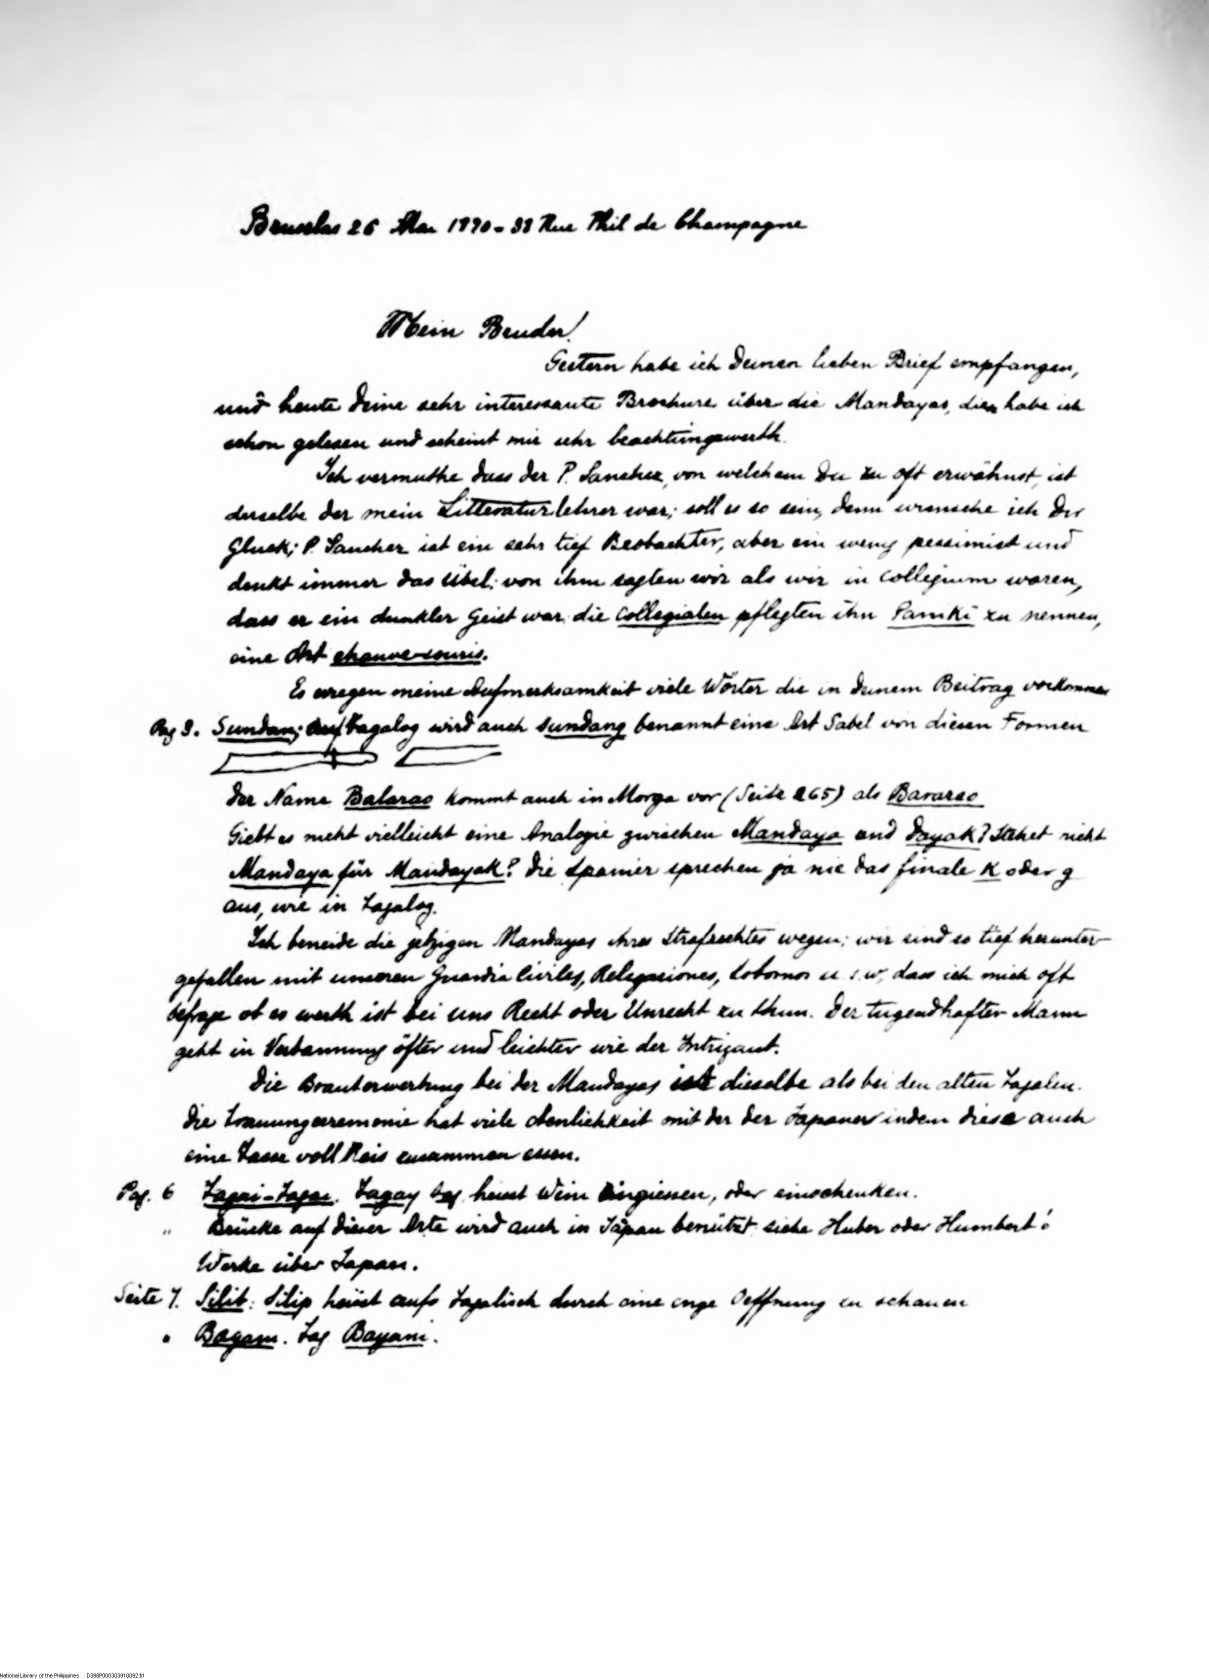 Bruselas 26 Mai 1890 - 38 Rue Phil de Champagne
Mein Bruder!
Gestern habe ich Deinen lieben Brief empfangen,
und heute Deine sehr interessante Brochure über die Mandayas, dies habe ich
schon gelesen und scheint mir sehr beachtungswerth.
Ich vermuthe dass der P. Sanchez, von welchem Du zu oft erwähnst, ist
derselbe der mein Litteraturlehrer war; soll es so sein, denn wünsche ich Dir
Gluck; P. Sanchez ist ein sehr tief Beobachter, aber ein wenig pessimist und
denkt immer das Übel: von ihm sagten wir als wir in Collegium waren,
dass er ein dunkler Geist war: die Collegialen pflegten ihn Paniki zu nennen,
eine Art chauve-souris.
Es erregen meine Aufmerksamkeit viele Wörter die in Deinem Beitrag vorkommen
Pag 3. Sundan; auf Tagalog wird auch sundang benannt eine Art Sabel von diesen Formen
Der Name Balarao kommt auch in Morga vor (Seite 265) als Bararao
Giebt es nicht vielleicht eine Analogie zwischen Mandaya und Dayak? Stehet nicht
Mandaya für Mandayak? Die Spanier sprechen ja nie das finale K oder g
aus, wie in Tagalog.
Ich beneide die jetzigen Mandayas ihres Strafrechtes wegen; wir sind so tief herunter-
gefallen mit unseren Guardia Civiles, Relegaciones, Sobornos u. s. w, dass ich mich oft
befrage ob es werth ist bei uns Recht oder Unrecht zu thun. Der tugendhafter Mann
geht in Verbannung öfter und leichter wie der Intrigant.
Die Brauterwerbung bei der Mandayas ist dieselbe als bei den alten Tagalen.
Die Trauungceremonie hat viele ahnlichkeit mit der der Japaner indem diese auch
eine Tasse voll Reis zusammen essen.
Pag. 6 Tagai-Tagai. Tagay Tag. heisst Wein Eingiessen, oder einschenken.
" Brücke auf dieser Arte wird auch in Japan benützt siehe Huber oder Humbert's
Werke über Japan.
Seite 7. Silib: Silip heisst aufs Tagalisch durch eine enge Oeffnung zu schauen
" Bagani. Tag Bayani.
National Library of the Philippines